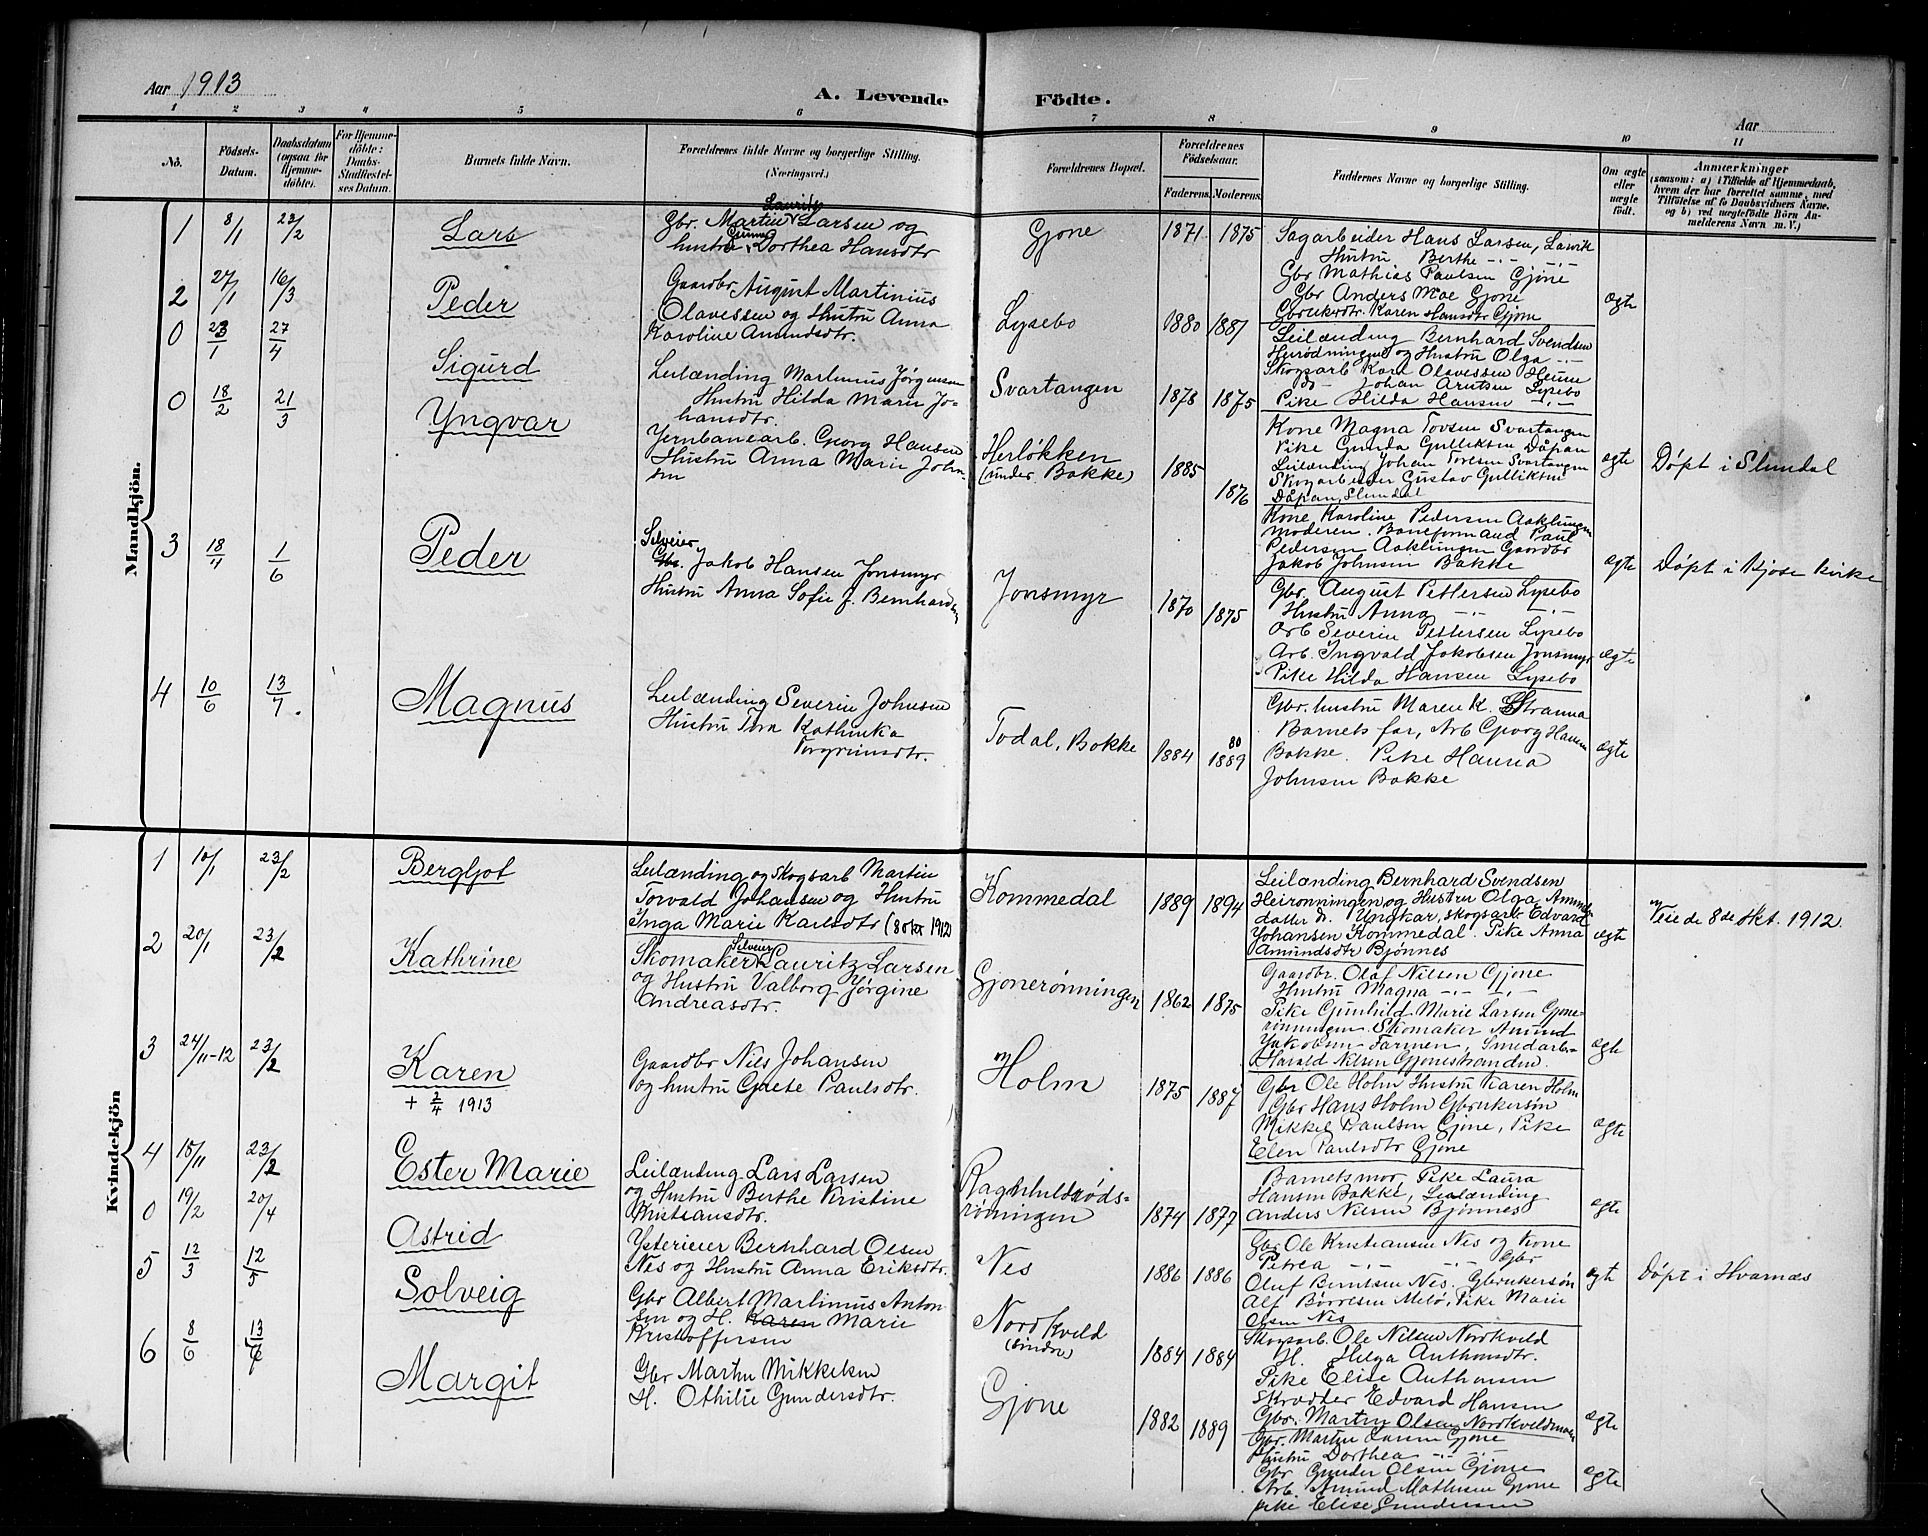 Aar 1913
A. Levende Födte.
Aar
1 2 3 4 5 6 7 8 9 10 11
No.
Födsels-Datum.
Daabsdatum (ogsaa for Hjemme-döbte).
For Hjemme-döbte: Daabs-Stadfæstel-ses Datum.
Barnets fulde Navn.
Forældrenes fulde Navne og borgerlige Stilling. (Næringsvei.)
Forældrenes Bopæl.
Forældrenes Födselsaar.
Faderens. Moderens.
Faddernes Navne og borgerlige Stilling.
Om ægte eller uægte födt.
Anmærkninger
(saasom: a) i Tilfælde af Hjemmedaab,
hvem der har forrettet samme, med
Tilföielse af to Daabsvidners Navne,
og b) ved uægtefödte Börn An-
melderens Navn m. V.)
Mandkjön.
1 8/1 23/2 Lars
Lauritz
Gbr. Martin Larsen og
Gunne
hustru Dorthea Hansdtr
Gjone 1871 1875
Sagarbeider Hans Larsen, Larvik
Hustru Berthe -"- -"-
Gbr Mathias Paulsen Gjone
Gbr Anders Moe Gjone
Gbrukerdtr. Karen Hansdtr Gjone
ægte
2 27/1 16/3 Peder
Gaardbr August Martinius
Olavessen og Hustru Anna
Karoline Amundsdtr.
Lysebo 1880 1881
Leilænding Bernhard Svendsen
Heirødningen og Hustru Olga -"-
Skogsarb Karl Olavessen Heime
do Johan Arntsen Lysebo
Pike Hilda Hansen -"-
0 23/1 27/4 Sigurd
Leilænding Martinius Jørgensen
Hustru Hilda Marie Jo-
hansdtr.
Svartangen 1878 1875
Kone Magna Tovsen Svartangen
Pike Gunda Gulliksen Dåpan
Leilænding Johan Toresen Svartangen
Skogarbeider Gustav Gulliksen
Dåpan, Slemdal
ægte Døpt i Slemdal
0 18/2 21/3 Yngvar
Jernbanearb. Georg Hansen
Hustru Anna Marie John-
sen
Herløkken
(under Bakke)
1885 1876
Kone Karoline Pedersen Aaklungen
Moderen. Baneformand Paul
Pedersen Aaklungen Gaardbr
Jakob Johnsen Bakke
ægte Døpt i Kjose kirke
3 18/4 1/6 Peder
Selveier
Gbr. Jakob Hansen Jonsmyr
Hustru Anna Sofie f. Bernhardsen
Jonsmyr 1870 1875
Gbr. August Pettersen Lysebo
Hustru Anna -"- -"-
Arb Severin Pettersen Lysebo
Arb. Ingvald Jakobsen Jonsmyr
Pike Hilda Hansen Lysebo
ægte
4 10/6 13/7 Magnus
Leilænding Severin Johnsen
Hustru Tora Kathinka
Torgrimsdtr.
Todal, Bakke 1884 80 1889
Gbr. hustru Maren K. Stranna
Barnets far, Arb Georg Hansen
Bakke. Pike Hanna
Johnsen Bakke
ægte
Kvindekjön
1 10/1 23/2 Bergljot
Leilænding og Skogsarb Martin
Torvald Johansen og Hustru
Inga Marie Karlsdtr (8 okt 1912)
Kommedal 1889 1894
Leilænding Bernhard Svendsen
Heirønningen og Hustru Olga Amunds-
datter d. Ungkar, skogsarb Edvard
Johansen Kommedal. Pike Anna
Amundsdtr Bjønnes
ægte Viede 8de Okt. 1912.
2 20/1 23/2 Kathrine
Selveier
Skomaker Lauritz Larsen
og Hustru Valborg Jørgine
Andreasdtr.
Gjonerønningen 1862 1875
Gaardbr. Olaf Nilsen Gjone
Hustru Magna -"- -"-
Pike Gunhild Marie Larsen Gjone-
rønningen. Skomaker Amund
Jakobsen Farmen, Smedarb-
Harald Nilsen Gjonestranden
ægte
3 24/11-12 23/2 Karen
+ 2/4 1913
Gaardbr Nils Johansen
og hustru Grete Paulsdtr.
Holm 1875 1887
Gbr Ole Holm Hustru Karen Holm
Gbr Hans Holm Gbrukersøn
Mikkel Paulsen Gjone, Pike
Elen Paulsdtr Gjone
ægte
4 15/11 23/2 Ester Marie
Leilænding Lars Larsen
og Hustru Berthe Kristine
Mistiansdtr.
Ragnhildrøds-
rønningen
1874 1877
Barnets mor, Pike Laura
Hansen Bakke, Leilænding
Anders Nilsen Bjønnes
ægte
0 19/2 20/4 Astrid
Ysterieier Bernhard Olsen
Nes og Hustru Anna Eriksdtr.
Nes 1886 1886
Gbr Ole Kristiansen Nes og Kone
Petrea -"- -"- Gbr
Oluf Berntsen Nes. Gbrukersøn
Alf Børresen Melø, Pike Marie
Olsen Nes
ægte Døpt i Hvarnæs
5 12/3 12/5 Solveig
Gbr Albert Martinius Anton-
sen og H. Karen Marie
Kristoffersen
Nordkveld
(Søndre)
1884 1884
Skogsarb. Ole Nilsen Nordkveld
H. Helga Anthonsdtr.
Pike Elise Anthonsen
Skrædder Edvard Hansen
Gbr. Martin Olsen Nordkveldmoen
ægte
6 8/6 13/7 Margit
Gbr Martin Mikkelsen
H. Othilie Gundersdtr.
Gjone 1882 1889
Gbr. Martin Larsen Gjone
Hustru Dorthea -"- -"-
Gbr Gunder Olsen Gjone
Arb. Amund Mathisen Gjone
pike Elise Gundersen
ægte